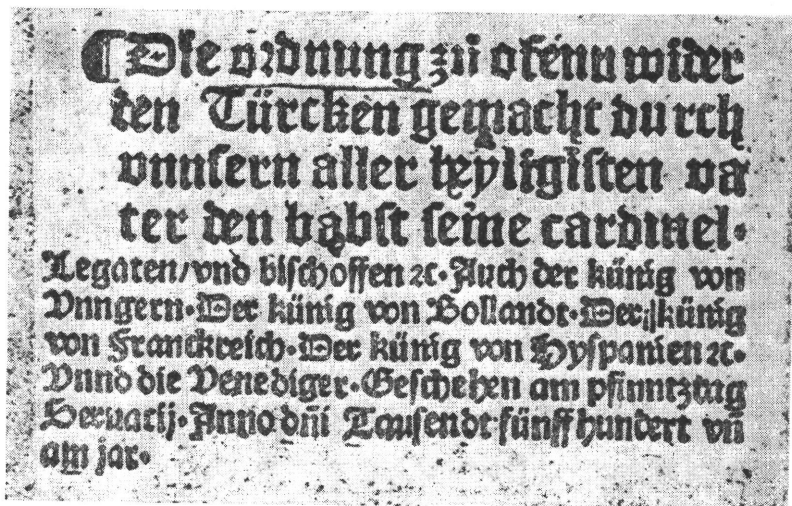 Die ordnung zů ofenn wider
den Türcken gemacht durch
vnnsern aller heyligisten va
ter den babst seine cardinel·
Legaten/vnd bischoffen ꝛc·Auch der künig von
Vnngern·Der künig von Bollandt·Der künig
von Franckreich·Der künig von Hyspanien ꝛc·
Vnnd die Venediger·Geschehen am pfinntztag
Seruacij·Anno dñi Tausendt fünff hundert vñ
am jar·